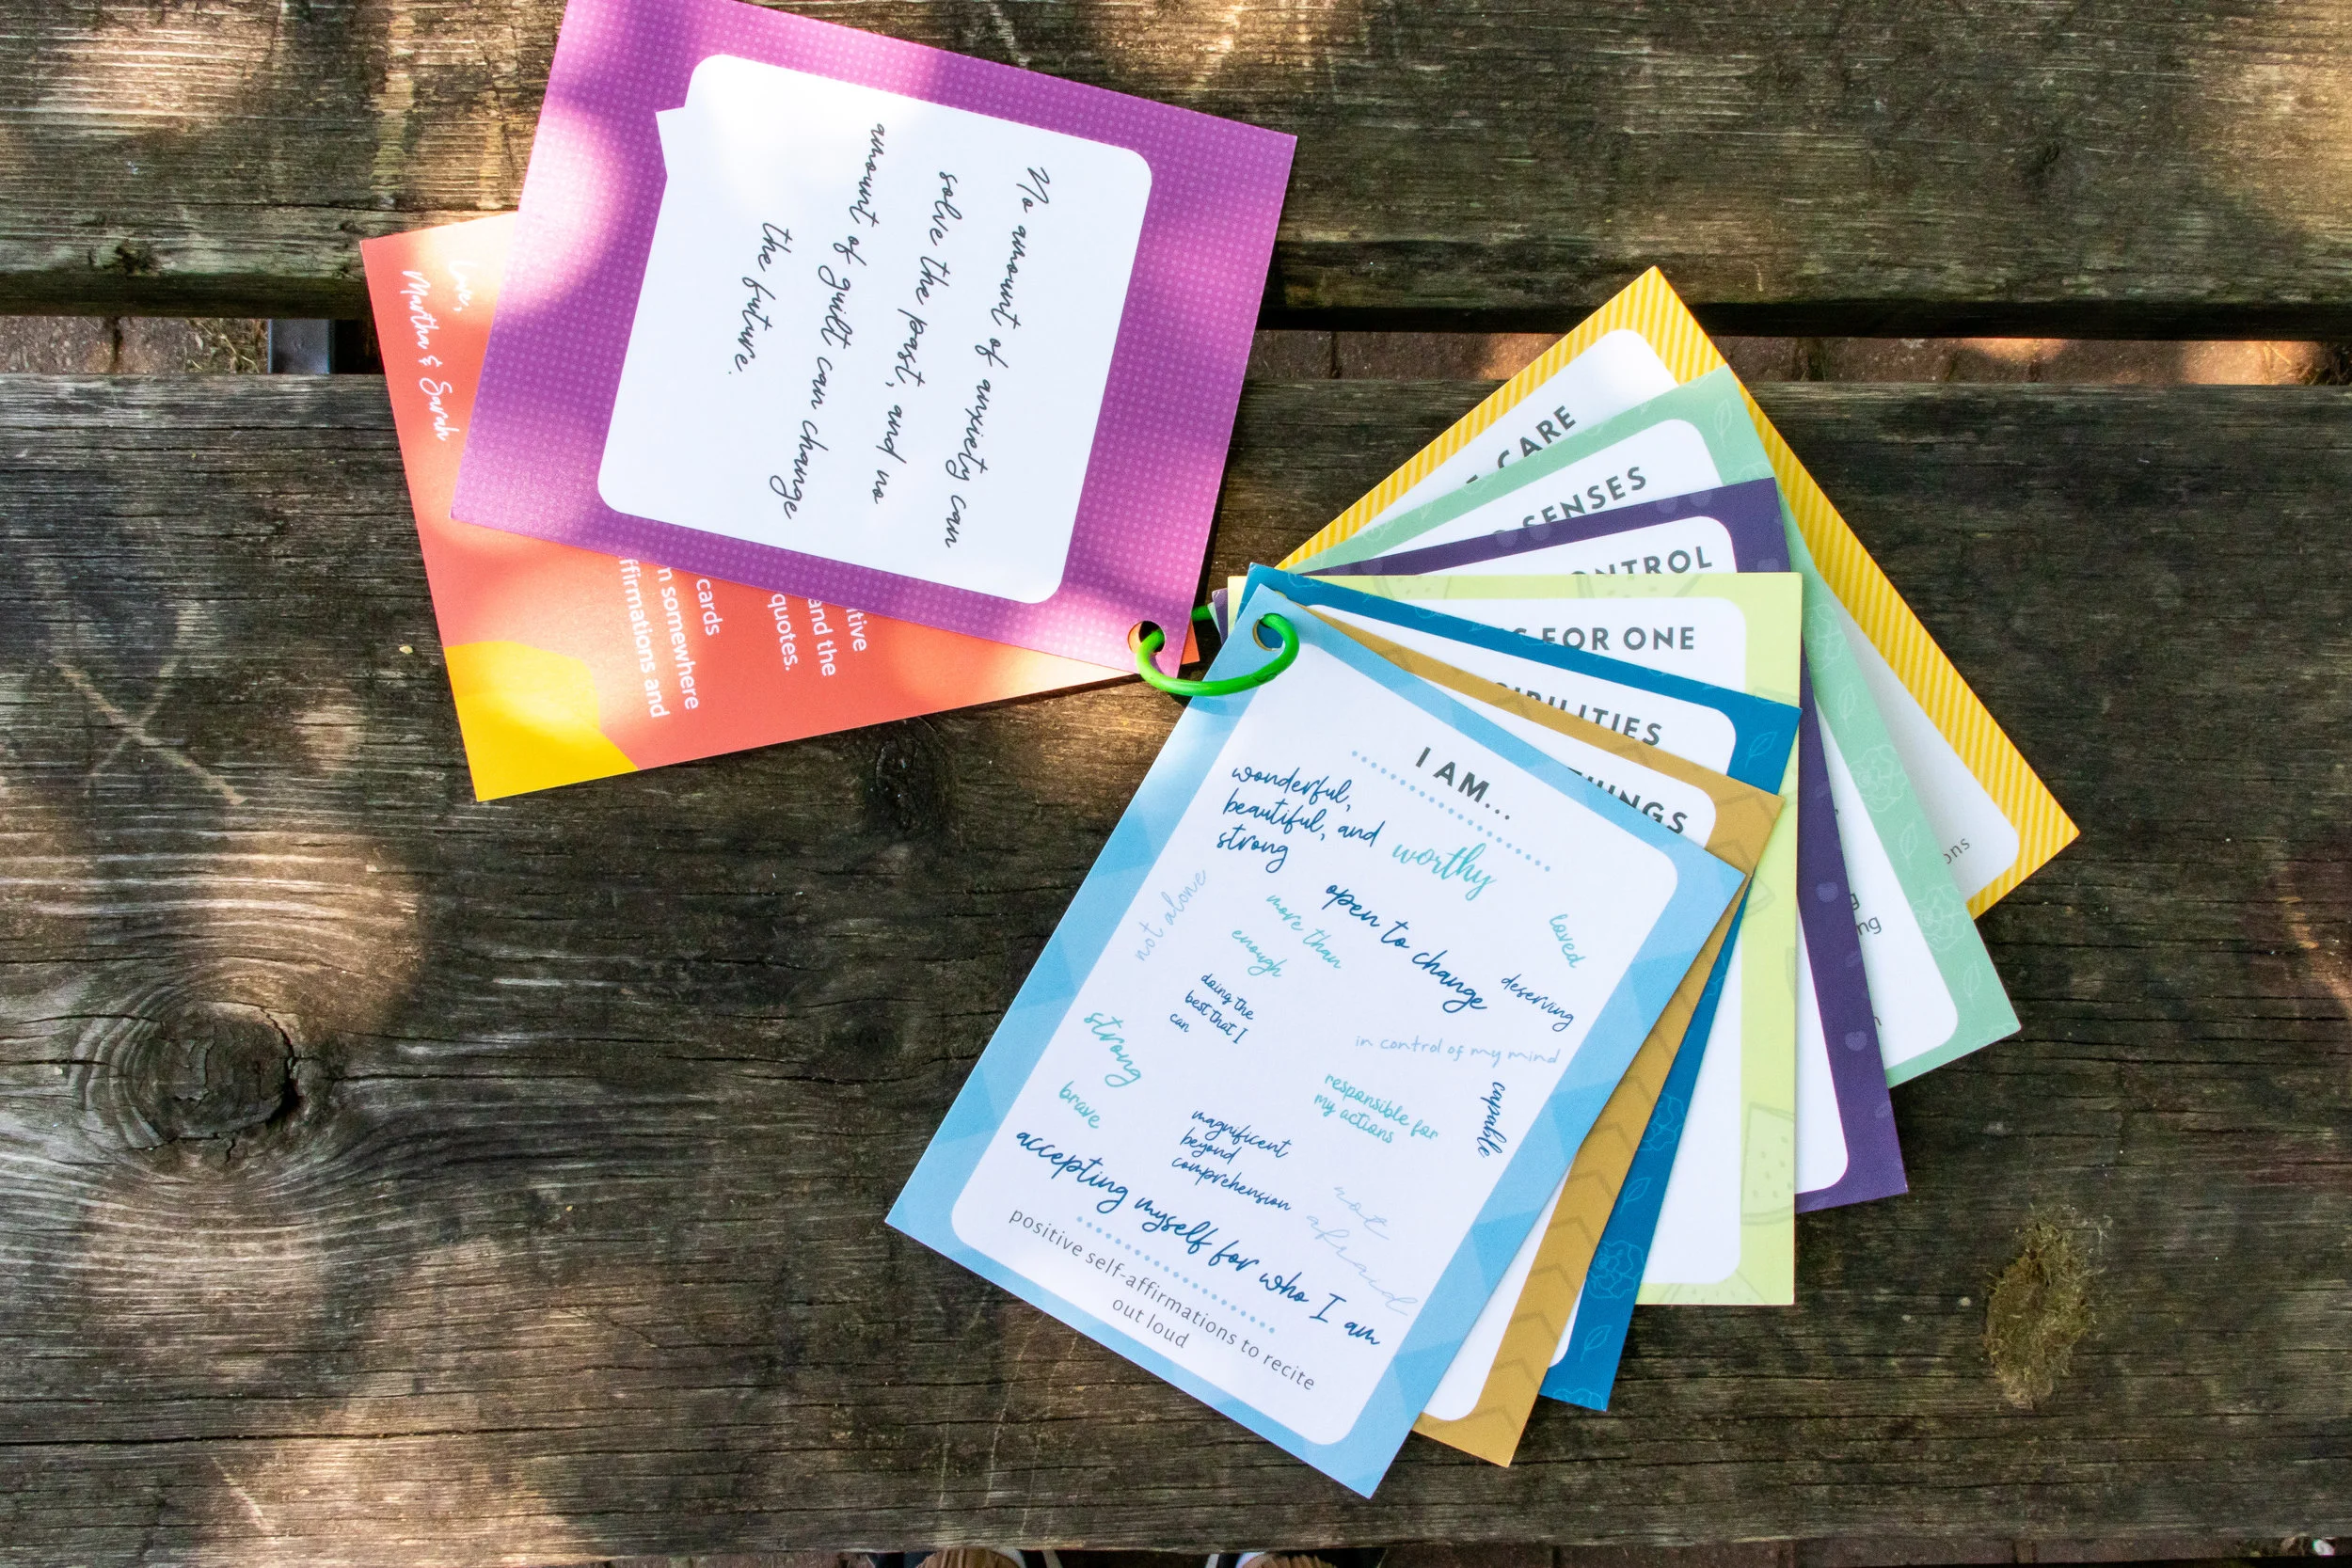 No amount of anxiety can
solve the past, and no
amount of guilt can change
the future.
Love,
Martha & Sarah
itive
and the
quotes.
cards
n somewhere
ffirmations and
CARE
SENSES
ONTROL
FOR ONE
IBILITIES
THINGS
I AM...
wonderful,
beautiful, and
strong
worthy
not alone
more than
enough
open to change
loved
deserving
doing the
best that I
can
in control of my mind
strong
brave
responsible for
my actions
capable
magnificent
beyond
comprehension
not
afraid
accepting myself for who I am
positive self-affirmations to recite
out loud
ons
ng